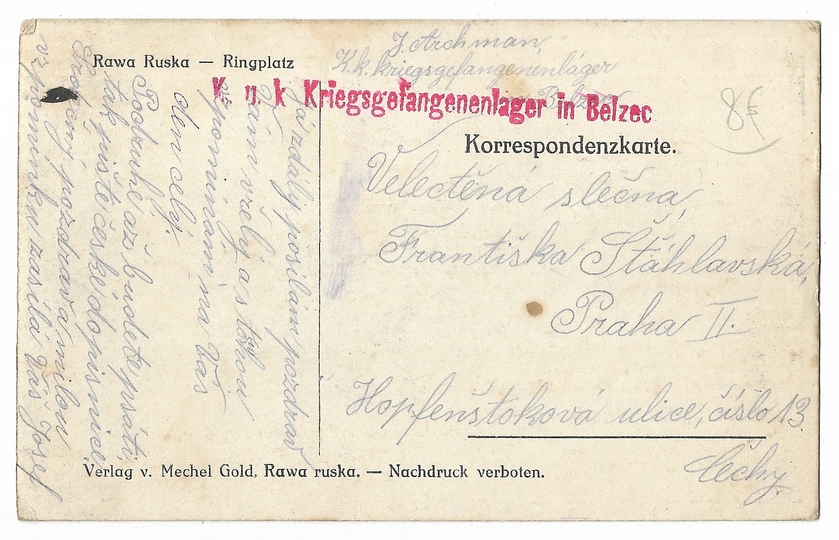 J. Archman,
K.k. kriegsgefangenenláger
Belzec
Rawa Ruska — Ringplatz
K. u. k Kriegsgefangenenlager in Belzec
8€
Korrespondenzkarte.
Velectěná slečna,
Františka Štáhlavská,
Praha II.
Hopfenštoková ulice, číslo 13.
Čechy.
zdaly posílám pozdrav
Vám vřelý a s touhou
vpomínám na Vás
den celý.
Podruhé až budete psáti,
tak pište české dopisnice.
Srdečný pozdrav a milou
vzpomínku zasílá Váš Josef
Verlag v. Mechel Gold, Rawa ruska. — Nachdruck verboten.